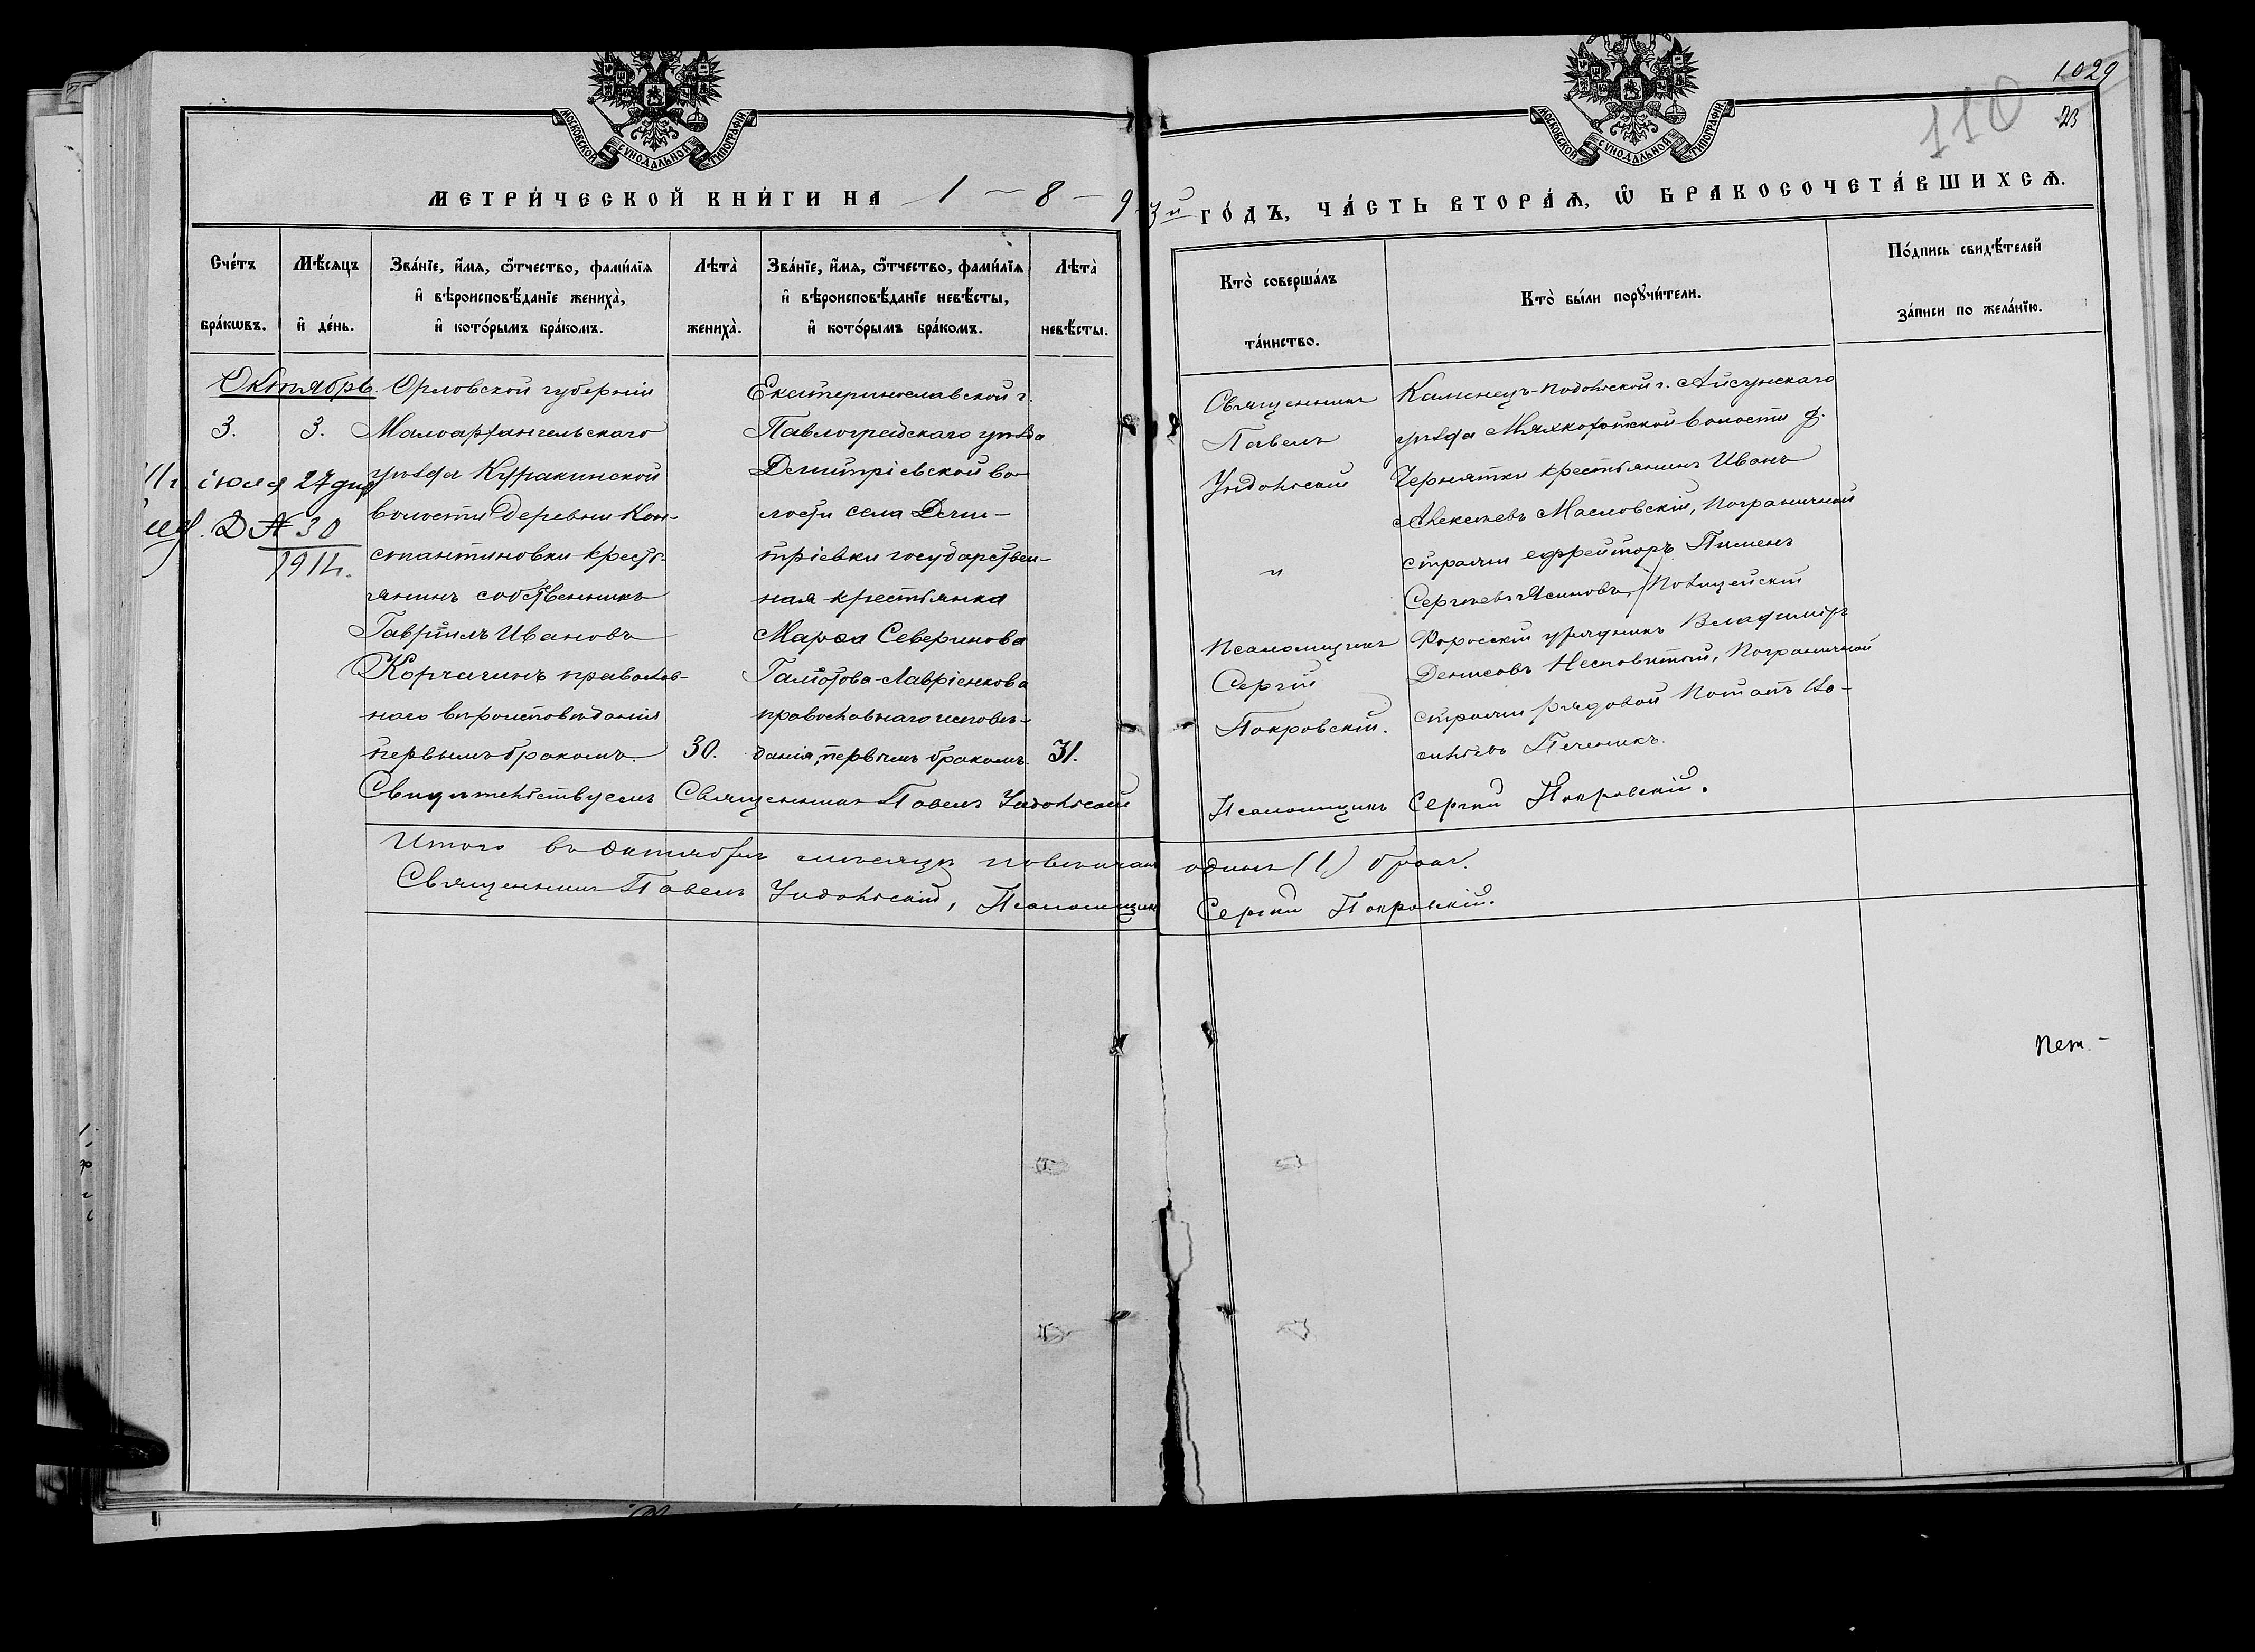 1029
110
23
МОСКОВСКОЙ СУНОДАЛЬНОЙ ТИПОГРАФІИ
МОСКОВСКОЙ СУНОДАЛЬНОЙ ТИПОГРАФІИ
МЕТРИ́ЧЕСКОЙ КНИ́ГИ НА 1 – 8 – 93й ГО́ДЪ, ЧА́СТЬ ВТОРА́Ѧ, Ѽ БРАКОСОЧЕТА́ВШИХСѦ.
Сче́тъ
бра́кѡвъ.
Мѣ́сѧцъ
и҆ де́нь.
Зва́нїе, и҆́мѧ, ѻ҆́тчество, фамилїѧ
и҆ вѣроисповѣ́данїе жениха̀,
и҆ кото́рымъ бра́комъ.
Лѣта̀
жениха̀.
Зва́нїе, и҆́мѧ, ѻ҆́тчество, фамилїѧ
и҆ вѣроисповѣ́данїе невѣ́сты,
и҆ кото́рымъ бра́комъ.
Лѣта̀
невѣ́сты.
Кто̀ соверша́лъ
та́инство.
Кто̀ бы́ли порꙋчи́тели.
По́дпись свидѣ́телей
за́писи по жела́нїю.
Октябрь.
3.
3.
іюля 27 дня
Д № 30
1914.
Орловской губерніи
Малоархангельскаго
уѣзда Куракинской
волости деревни Кон-
стантиновки кресть-
янинъ собственникъ
Гавріилъ Ивановъ
Корчагинъ православ-
наго вѣроисповѣданія
первымъ бракомъ
30.
Екатеринославской г.
Павлоградскаго уѣзда
Дмитріевской во-
лости села Дми-
тріевки государствен-
ная крестьянка
Марѳа Северинова
православнаго исповѣ-
данія, первымъ бракомъ.
31.
Священникъ
Павелъ
Ундольскій
и
Псаломщикъ
Сергій
Покровскій.
Каменецъ-Подольской г.
уѣзда волости д.
Чернятки крестьянинъ Иванъ
Алексѣевъ Масловскій, Пограничной
стражи ефрейторъ Пименъ
Сергѣевъ Ясиновъ, Полицейскій
Форосскій урядникъ Владиміръ
Денисовъ Пограничной
стражи рядовой Потапъ Ва-
сильевъ Печеникъ.
Свидѣтельствуемъ Священникъ Павелъ Ундольскій Псаломщикъ Сергій Покровскій.
Итого въ октябрѣ мѣсяцѣ повѣнчанъ одинъ (1) бракъ.
Священникъ Павелъ Ундольскій, Псаломщикъ Сергій Покровскій.